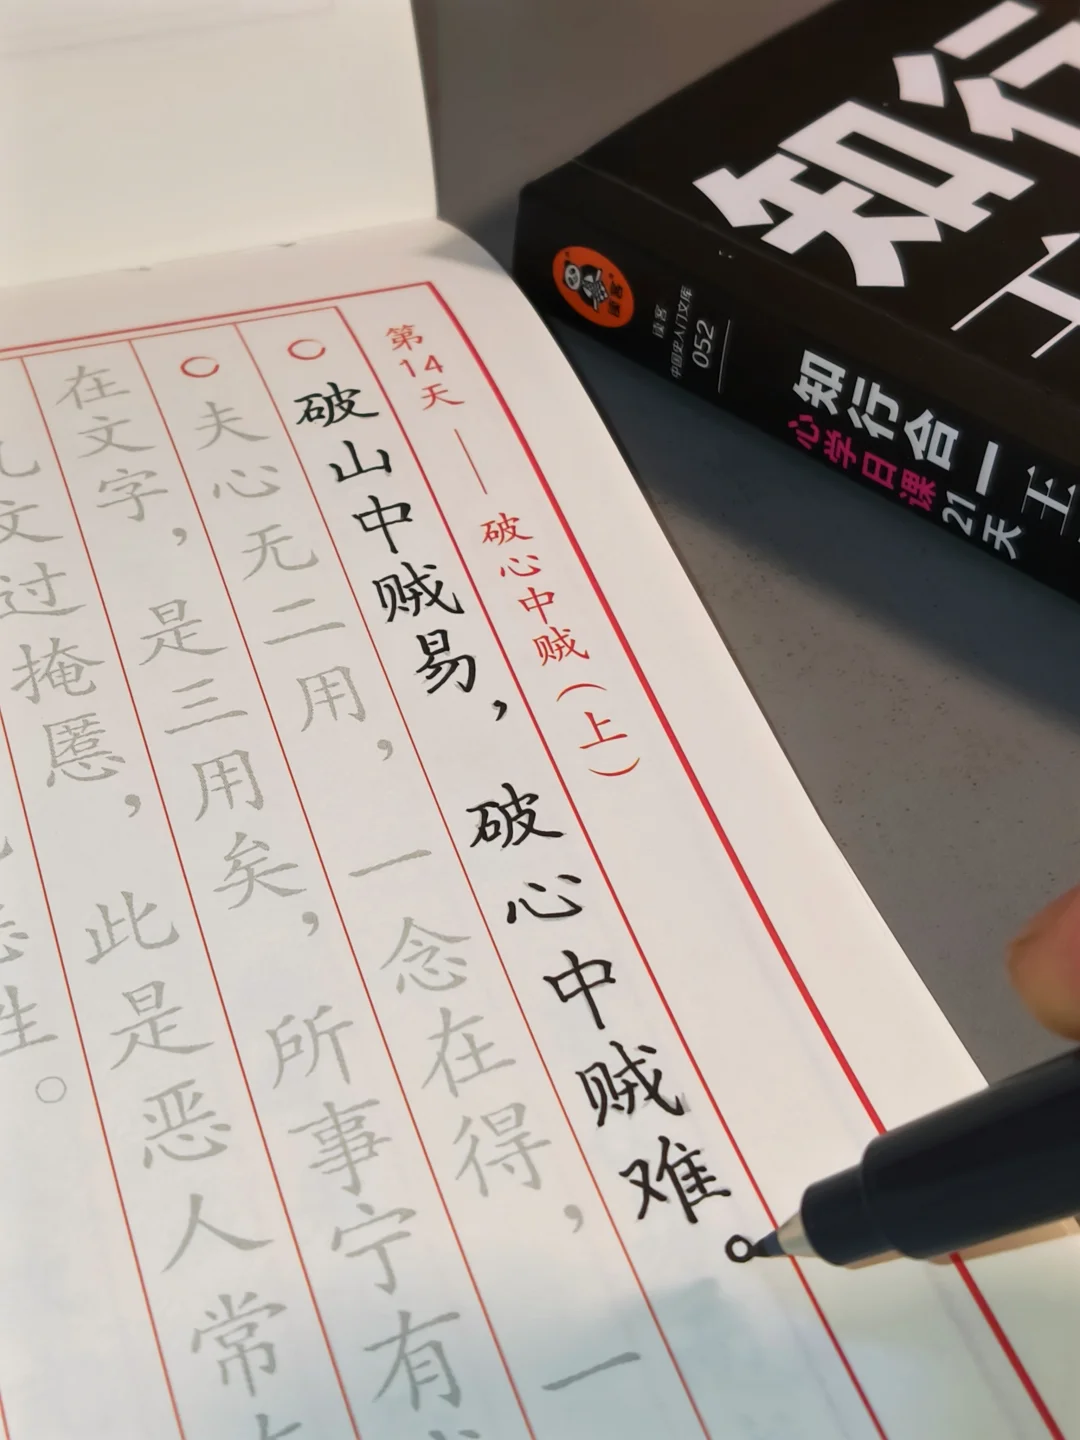 第14天——破心中贼（上）
○破山中贼易，破心中贼难。
○夫心无二用，一念在得，一
在文字，是三用矣，所事宁有
文过掩慝，此是恶人常
性。
知行
知行合一王
心学日课21天
读客
中国史入门文库
052
读客